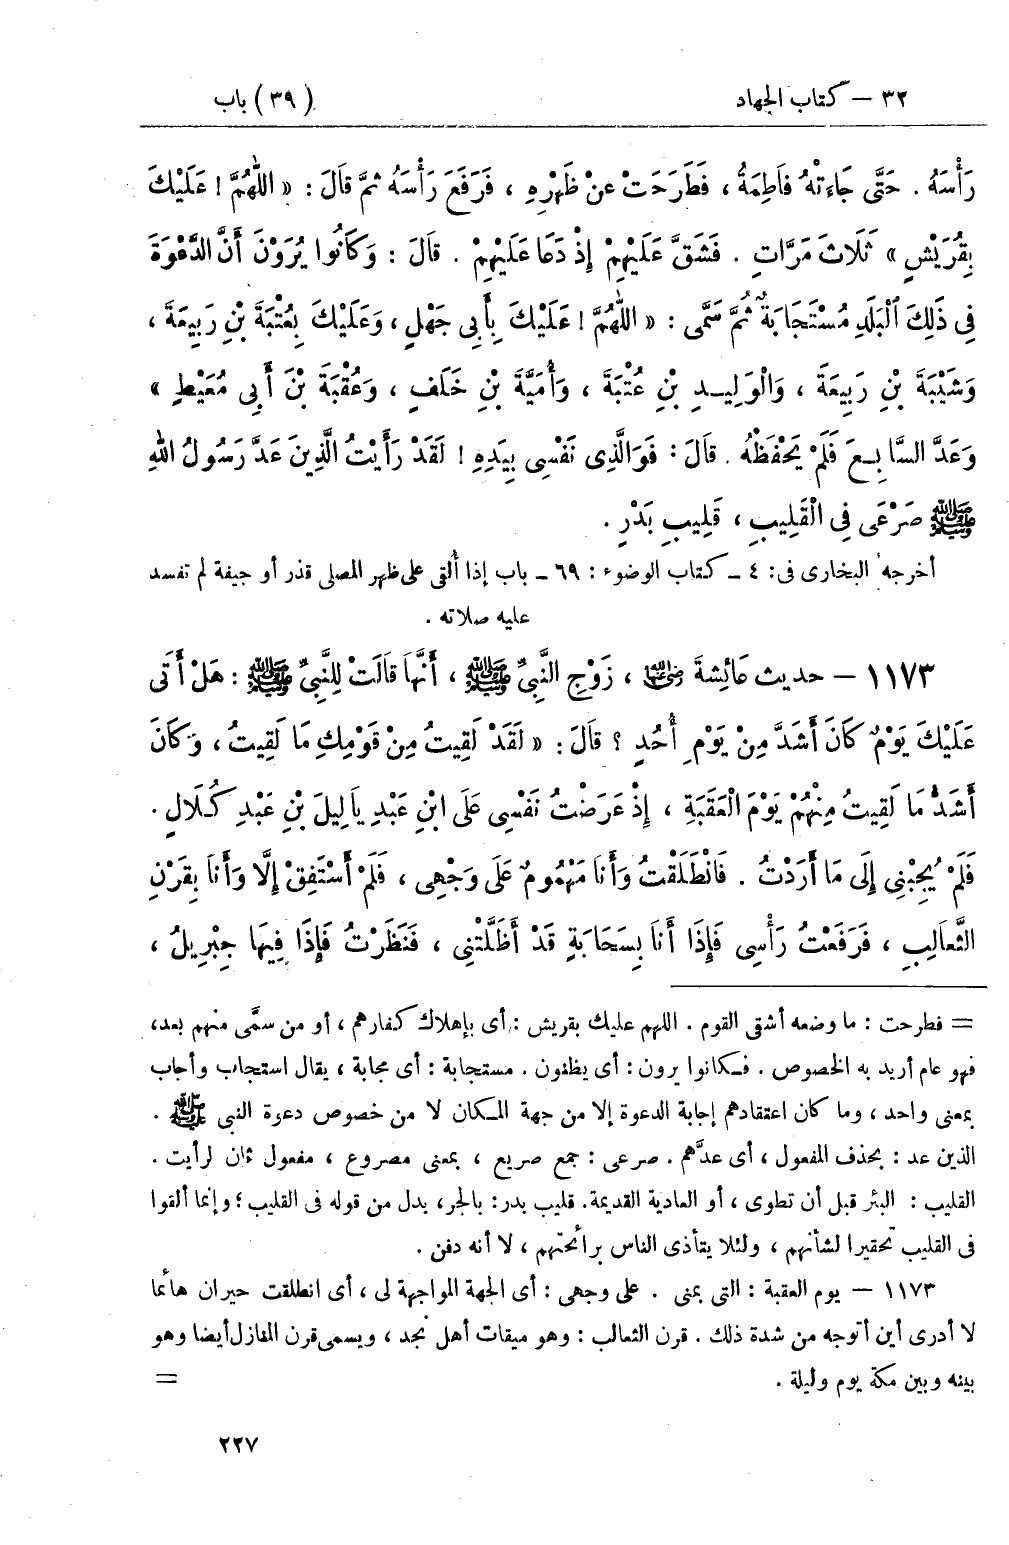 ٣٢ – كتاب الجهاد (٣٩) باب
رَأْسَهُ . حَتَّى جَاءَتْهُ فَاطِمَةُ ، فَطَرَحَتْ عَنْ ظَهْرِهِ ، فَرَفَعَ رَأْسَهُ ثُمَّ قَالَ : « اللّٰهُمَّ ! عَلَيْكَ
بِقُرَيْشٍ » ثَلَاثَ مَرَّاتٍ . فَشَقَّ عَلَيْهِمْ إِذْ دَعَا عَلَيْهِمْ . قَالَ : وَكَانُوا يُرَوْنَ أَنَّ الدَّعْوَةَ
فِي ذَلِكَ الْبَلَدِ مُسْتَجَابَةٌ ثُمَّ سَمَّى : « اللّٰهُمَّ ! عَلَيْكَ بِأَبِي جَهْلٍ ، وَعَلَيْكَ بِعُتْبَةَ بْنِ رَبِيعَةَ ،
وَشَيْبَةَ بْنِ رَبِيعَةَ ، وَالْوَلِيدِ بْنِ عُتْبَةَ ، وَأُمَيَّةَ بْنِ خَلَفٍ ، وَعُقْبَةَ بْنَ أَبِي مُعَيْطٍ »
وَعَدَّ السَّابِعَ فَلَمْ يَحْفَظْهُ . قَالَ : فَوَالَّذِي نَفْسِي بِيَدِهِ ! لَقَدْ رَأَيْتُ الَّذِينَ عَدَّ رَسُولُ اللهِ
ﷺ صَرْعَى فِي الْقَلِيبِ ، قَلِيبِ بَدْرٍ .
أخرجه البخارى فى : ٤ – كتاب الوضوء : ٦٩ – باب إذا أُلقى على ظهر المصلى قذر أو جيفة لم تفسد
عليه صلاته .
١١٧٣ – حديث عَائِشَةَ رضي الله عنها ، زَوْجِ النَّبِيِّ ﷺ ، أَنَّهَا قَالَتْ لِلنَّبِيِّ ﷺ : هَلْ أَتَى
عَلَيْكَ يَوْمٌ كَانَ أَشَدَّ مِنْ يَوْمِ أُحُدٍ ؟ قَالَ : « لَقَدْ لَقِيتُ مِنْ قَوْمِكِ مَا لَقِيتُ ، وَكَانَ
أَشَدُّ مَا لَقِيتُ مِنْهُمْ يَوْمَ الْعَقَبَةِ ، إِذْ عَرَضْتُ نَفْسِي عَلَى ابْنِ عَبْدِ يَالِيلَ بْنِ عَبْدِ كُلَالٍ .
فَلَمْ يُجِبْنِي إِلَى مَا أَرَدْتُ . فَانْطَلَقْتُ وَأَنَا مَهْمُومٌ عَلَى وَجْهِي ، فَلَمْ أَسْتَفِقْ إِلَّا وَأَنَا بِقَرْنِ
الثَّعَالِبِ ، فَرَفَعْتُ رَأْسِي فَإِذَا أَنَا بِسَحَابَةٍ قَدْ أَظَلَّتْنِي ، فَنَظَرْتُ فَإِذَا فِيهَا جِبْرِيلُ ،
= فطرحت : ما وضعه أشقى القوم . اللهم عليك بقريش : أى بإهلاك كفارهم ، أو من سمَّى منهم بعد،
فهو عام أريد به الخصوص . فكانوا يرون : أى يظنون . مستجابة : أى مجابة ، يقال استجاب وأجاب
بمعنى واحد ، وما كان اعتقادهم إجابة الدعوة إلا من جهة المكان لا من خصوص دعوة النبى ﷺ .
الذين عد : بحذف المفعول ، أى عدَّهم . صرعى : جمع صريع ، بمعنى مصروع ، مفعول ثان لرأيت .
القليب : البئر قبل أن تطوى ، أو العادية القديمة. قليب بدر: بالجر، بدل من قوله فى القليب ؛ وإنما ألقوا
فى القليب تحقيرا لشأنهم ، ولئلا يتأذى الناس برائحتهم ، لا أنه دفن .
١١٧٣ – يوم العقبة : التى بمنى . على وجهى : أى الجهة المواجهة لى ، أى انطلقت حيران هائما
لا أدرى أين أتوجه من شدة ذلك . قرن الثعالب : وهو ميقات أهل نجد ، ويسمى قرن المنازل أيضا وهو
بينه وبين مكة يوم وليلة . =
٢٢٧